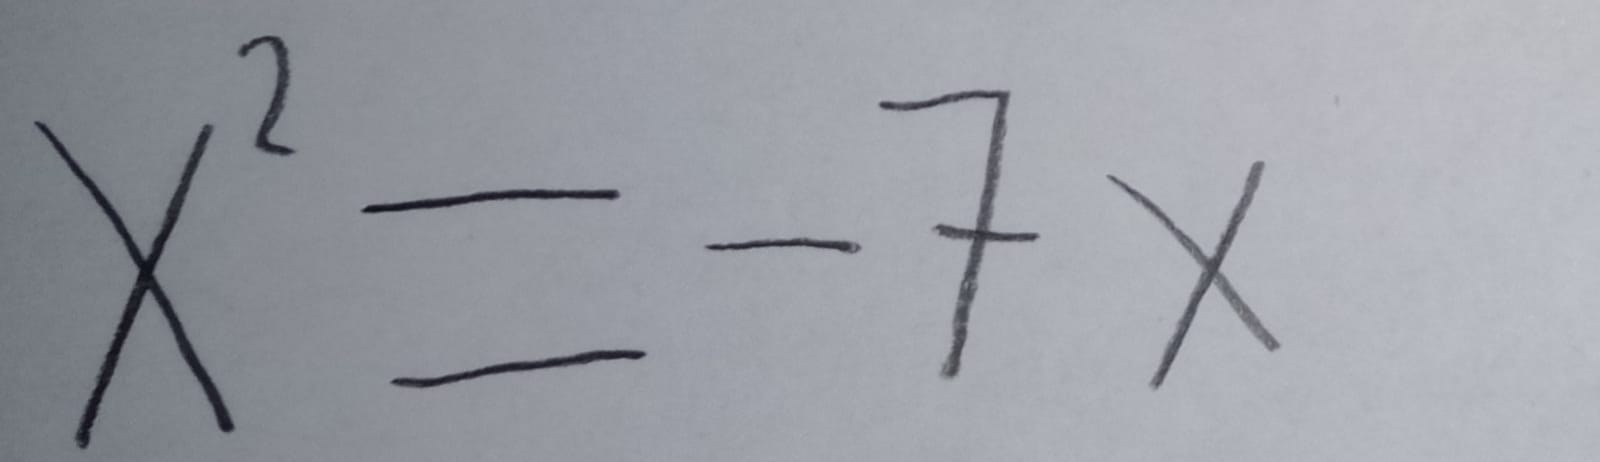 x² = -7x